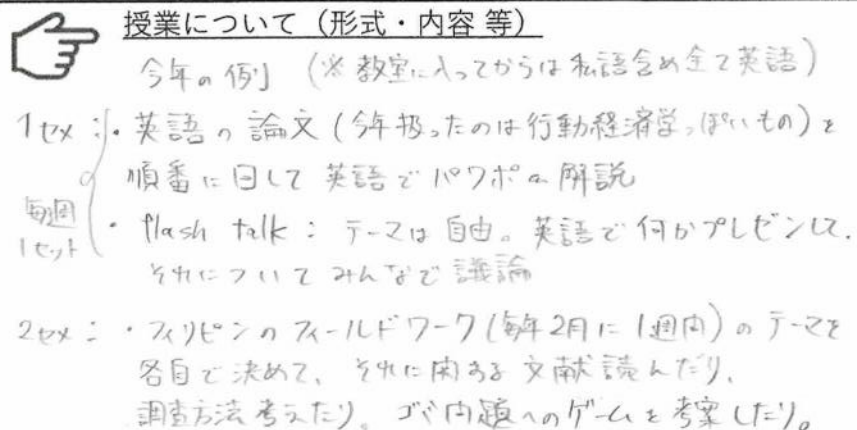 授業について（形式・内容 等）
今年の例（※教室に入ってからは私語含め全て英語）
1セメ：・英語の論文（今年扱ったのは行動経済学っぽいもの）を
順番に回して英語でパワポの解説
毎週
1セット
・flash talk：テーマは自由。英語で何かプレゼンして、
それについてみんなで議論
2セメ：・フィリピンのフィールドワーク（毎年2月に1週間）のテーマを
各自で決めて、それに関する文献読んだり、
調査方法考えたり。ゴミ問題へのゲームを考案したり。